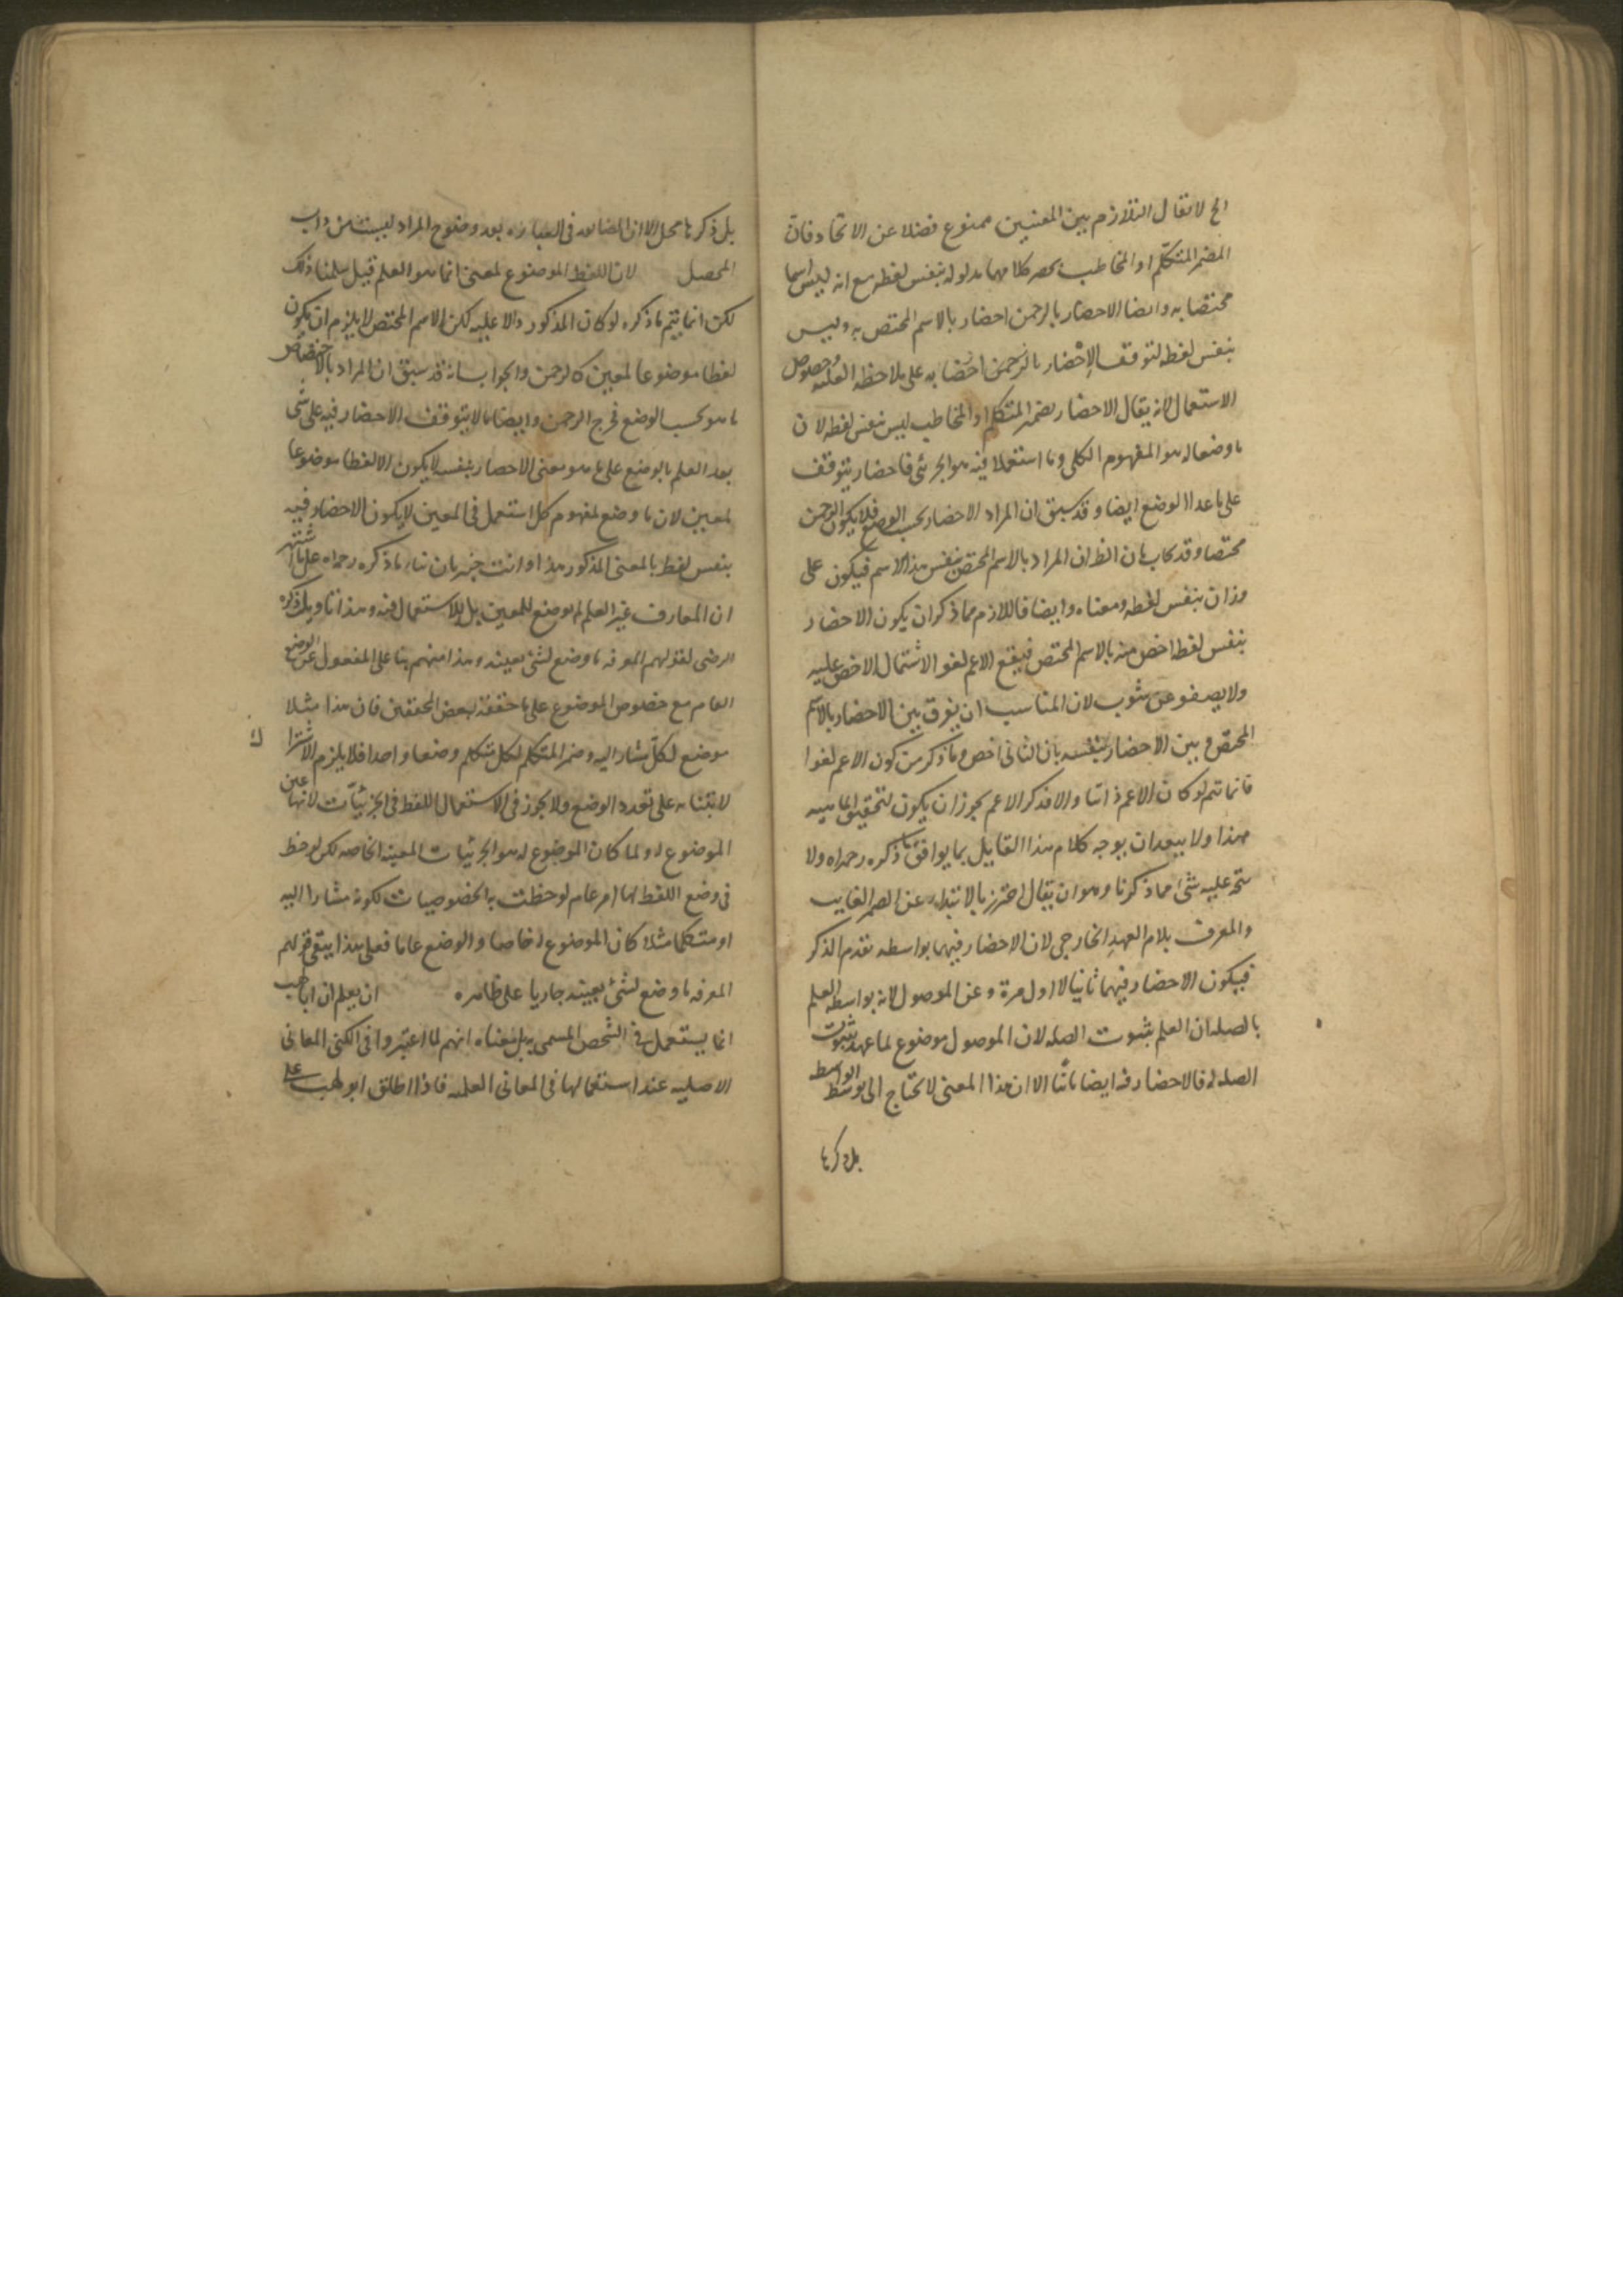 الخ لا يقال التلازم بين المعنيين ممنوع فضلا عن الاتحاد فان
المضمر المتكلم او المخاطب يحضر كلا مهما مدلوله بنفس لفظه مع انه ليس اسما
مختصا به وايضا الاحضار بالرحمن احضار بالاسم المختص به وليس
بنفس لفظه لتوقف الاحضار بالرحمن على ملاحظة الغلبة وخصوص
الاستعمال لانه يقال الاحضار بضمير المتكلم او المخاطب ليس بنفس لفظه لان
ما وضعا له هو المفهوم الكلى وما استعملا فيه هو الجزئى فاحضاره يتوقف
على ما عدا الوضع ايضا وقد سبق ان المراد الاحضار بحسب الوضع فلا يكون الرحمن
مختصا وقد يجاب بان الظ ان المراد بالاسم المختص بنفس هذا الاسم فيكون على
وزان بنفس لفظه ومعناه وايضا فاللازم مما ذكر ان يكون الاحضار
بنفس لفظه اخص منه بالاسم المختص فيقع الاعم لغوا لاشتمال الاخص عليه
ولا يصفو عن شوب لان المناسب ان يفرق بين الاحضار بالاسم
المختص وبين الاحضار بنفسه بان الثانى اخص وما ذكر من كون الاعم لغوا
فانما يتم لو كان الاعم ذاتيا والا فذكر الاعم يجوز ان يكون لتحقيق الماهية
هذا ولا يبعد ان يوجه كلام هذا القايل بما يوافق ما ذكره رحمه الله ولا
يتجه عليه شئ مما ذكرنا وهو ان يقال احترز بالابتداء عن الضمير الغايب
والمعرف بلام العهد الخارجى لان الاحضار فيهما بواسطه تقدم الذكر
فيكون الاحضار فيهما ثانيا لا اول مرة وعن الموصول لانه بواسطه العلم
بالصله ان العلم بثبوت الصله لان الموصول موضوع لما عهد بثبوت
الصله له فالاحضار فيه ايضا ثانيا الا ان هذا المعنى لا يحتاج الى توسط الواسطه
بل ذكرها
بل ذكرها مخل الا ان المضايقه فى العبارة بعد وضوح المراد ليست من داب
المحصل لان اللفظ الموضوع لمعين انما هو العلم قيل سلمنا ذلك
لكن انما يتم ما ذكره لو كان المذكور دالا عليه لكن الاسم المختص لا يلزم ان يكون
لفظا موضوعا لمعين كالرحمن والجواب انه قد سبق ان المراد بالاختصاص
ما هو بحسب الوضع فخرج الرحمن وايضا ما لا يتوقف الاحضار فيه على شئ
بعد العلم بالوضع على ما هو معنى الاحضار بنفسه لا يكون الا لفظا موضوعا
لمعين لان ما وضع لمفهوم كلى استعمل فى المعين لا يكون الاحضار فيه
بنفس لفظه بالمعنى المذكور هذا وانت خبير بان بناء ما ذكره رحمه الله على ما اشتهر
ان المعارف غير العلم لم يوضع للمعين بل للاستعمال فيه وهذا تاويل ذكره
الرضى لقولهم المعرفة ما وضع لشئ بعينه وهذا منهم بنا على الغفول عن الوضع
العام مع خصوص الموضوع على ما حققه بعض المحققين فان هذا مثلا
موضع لكل مشار اليه وضمير المتكلم لكل متكلم وضعا واحدا فلا يلزم الاشترا
ك
لابتنائه على تعدد الوضع ولا يجوز فى الاستعمال اللفظ فى الجزئيات لانها عين
الموضوع له ولما كان الموضوع له هو الجزئيات المعينة الخاصه لكن لوحظ
فى وضع اللفظ لها امر عام لوحظت به الخصوصيات لكونه مشارا اليه
او متكلما مثلا كان الموضوع له خاصا والوضع عاما فعلى هذا يبقى قولهم
المعرفه ما وضع لشئ بعينه جاريا على ظاهره ان يعلم ان ابا لهب
انما يستعمل فى الشخص المسمى به بل معناه انهم لما اعتبروا فى الكنى المعانى
الاصليه عند استعمالها فى المعانى العلميه فاذا اطلق ابو لهب على